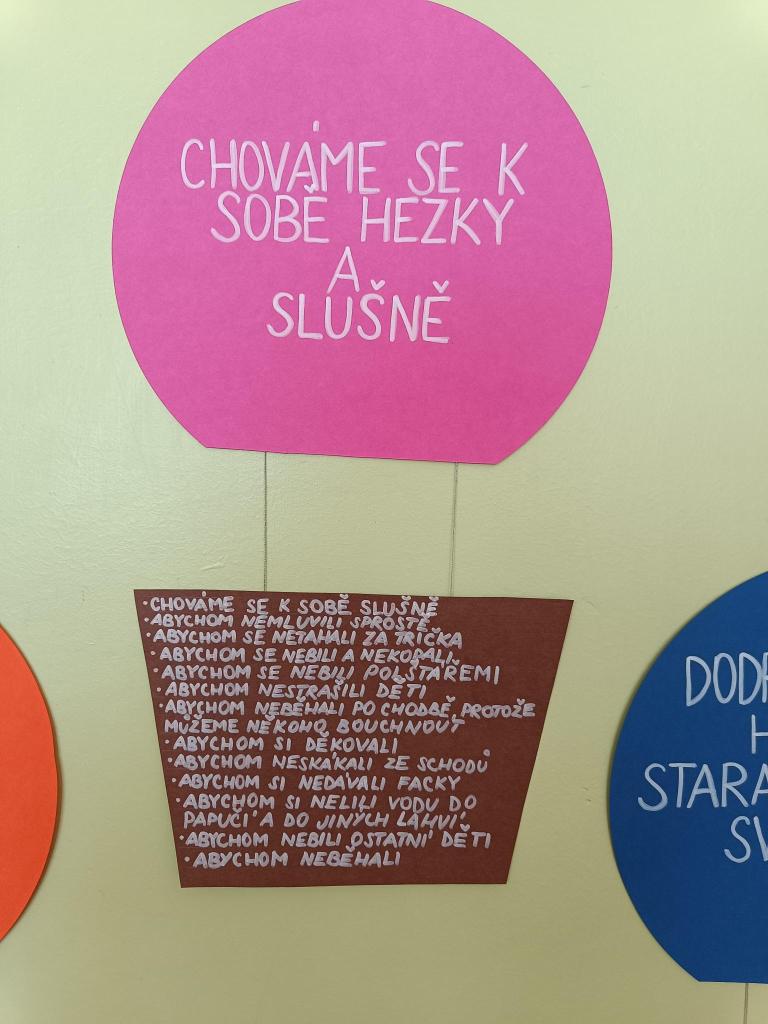 CHOVÁME SE K
SOBĚ HEZKY
A
SLUŠNĚ
·CHOVÁME SE K SOBĚ SLUŠNĚ
·ABYCHOM NEMLUVILI SPROSTĚ
·ABYCHOM SE NETAHALI ZA TRIČKA
·ABYCHOM SE NEBILI A NEKOPALI
·ABYCHOM SE NEBILI POLŠTÁŘEMI
·ABYCHOM NESTRAŠILI DĚTI
·ABYCHOM NEBĚHALI PO CHODBĚ, PROTOŽE
MŮŽEME NĚKOHO BOUCHNOUT
·ABYCHOM SI DĚKOVALI
·ABYCHOM NESKÁKALI ZE SCHODŮ
·ABYCHOM SI NEDÁVALI FACKY
·ABYCHOM SI NELILI VODU DO
PAPUČÍ A DO JINÝCH LAHVÍ
·ABYCHOM NEBILI OSTATNÍ DĚTI
·ABYCHOM NEBĚHALI
STARA